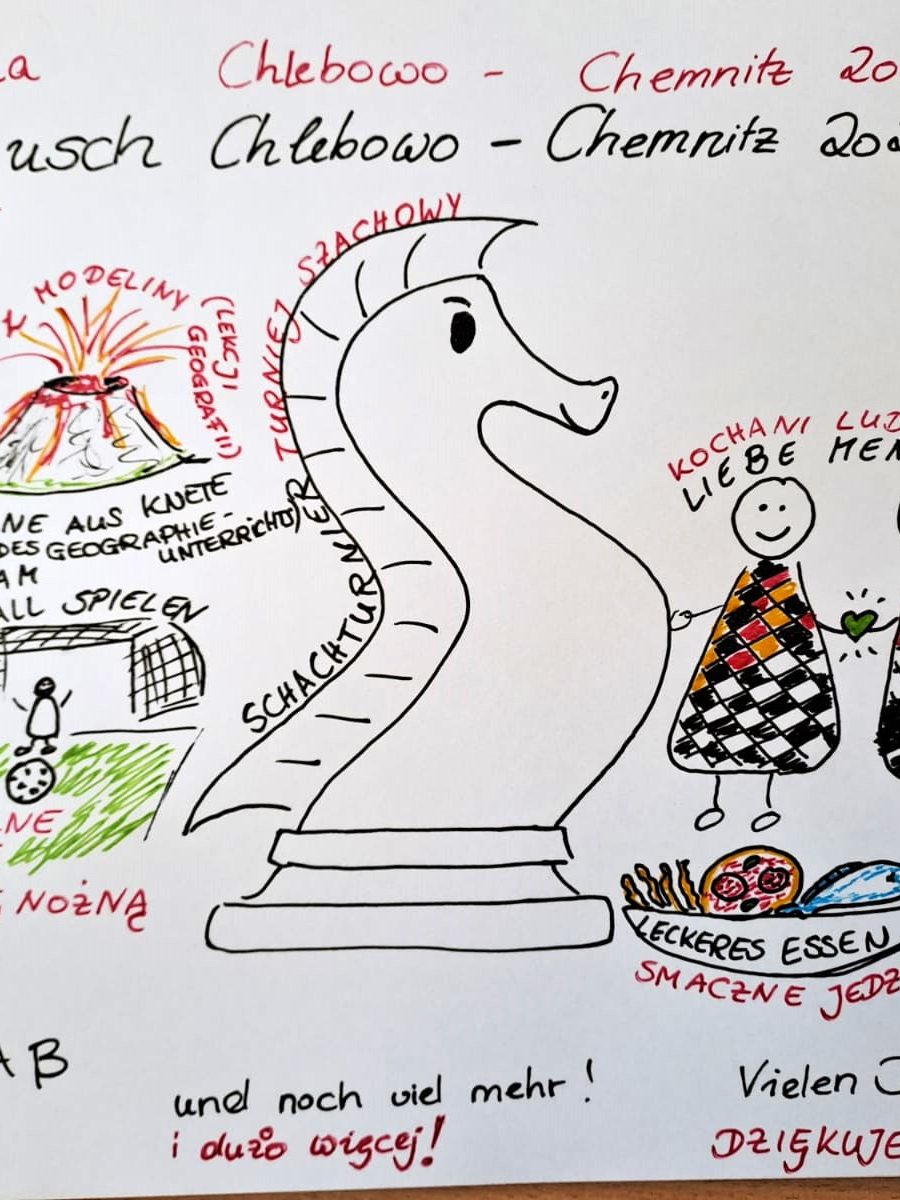 Chlebowo - Chemnitz 20
usch Chlebowo - Chemnitz 20
TURNIEJ SZACHOWY
Z MODELINY
(LEKCJI
GEOGRAFII)
NE AUS KNETE
DES GEOGRAPHIE-
UNTERRICHTS)
AM
ALL SPIELEN
NE
NOŻNĄ
SCHACHTURNIER
KOCHANI LUD
LIEBE MEN
LECKERES ESSEN
SMACZNE JEDZ
A B
und noch viel mehr!
i dużo więcej!
Vielen
DZIĘKUJE